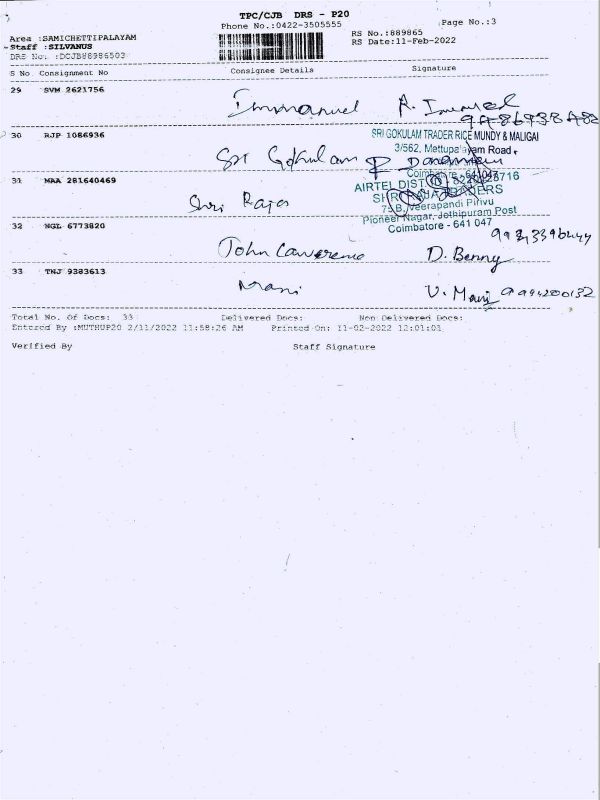 TPC/CJB DRS - P20
Phone No.:0422-3505555
Page No.:3
Area :SAMICHETTIPALAYAM
RS No.:889865
Staff :SILVANUS
RS Date:11-Feb-2022
DRS No. :DCJB88986503
S No Consignment No Consignee Details Signature
29 SVM 2621756
Immanuel
30 RJP 1086936
SRI GOKULAM TRADER RICE MUNDY & MALIGAI
3/562, Mettupalayam Road,
Sri Gokulam
31 MAA 281640469
AIRTEL DIST
Shri Raja
75B, Veerapandi Pirivu
Pioneer Nagar, Jothipuram Post
Coimbatore - 641 047
32 NGL 6773820
John Lawrence D. Benny
33 TNJ 9383613
Mani V. Mani 9994200132
Total No. Of Docs: 33 Delivered Docs: Non Delivered Docs:
Entered By :MUTHUP20 2/11/2022 11:58:26 AM Printed On: 11-02-2022 12:01:01
Verified By Staff Signature